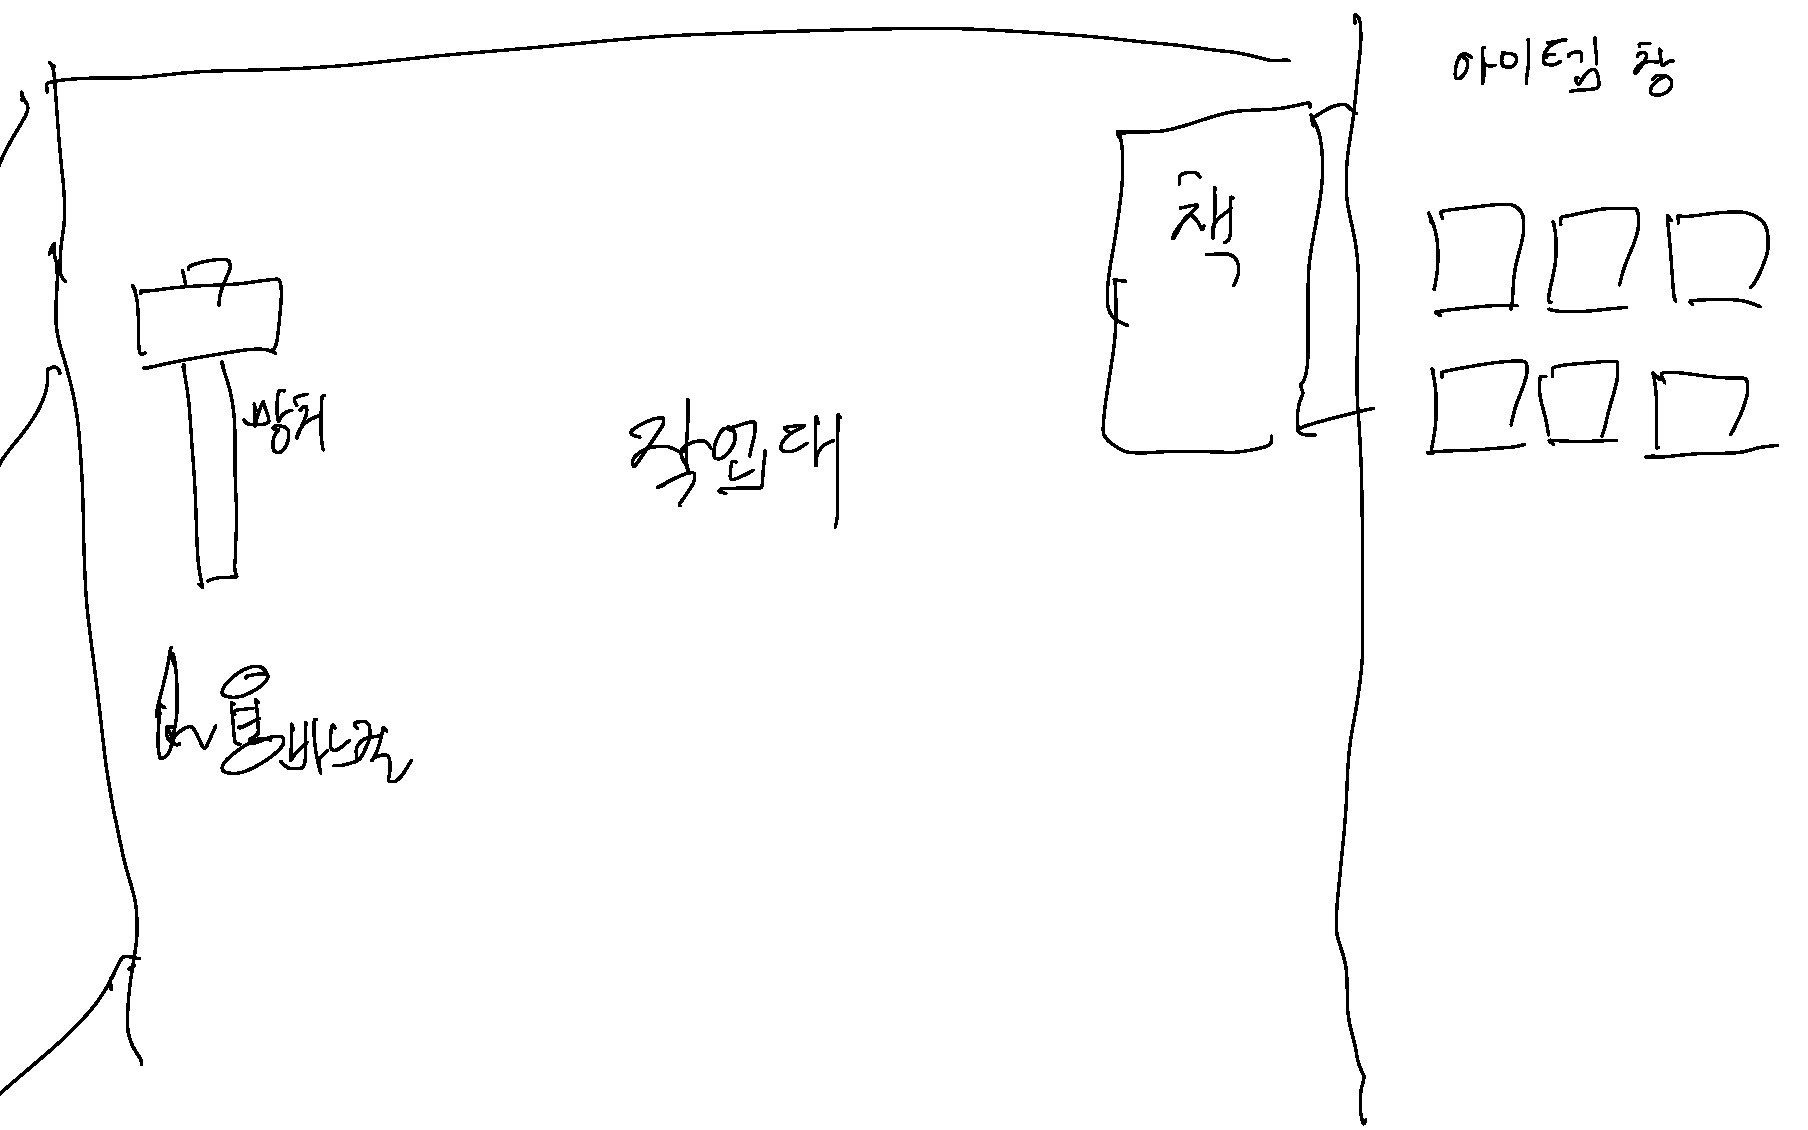 아이템 창
책
망치
작업대
바늘